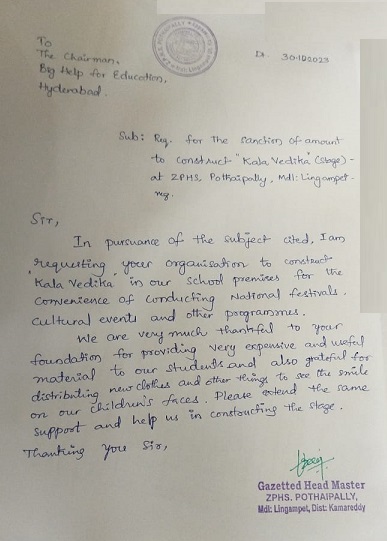 To
The Chairman,
Big Help for Education,
Hyderabad.
Dt. 30-10-2023
Sub: Req. for the sanction of amount
to construct "Kala Vedika" (stage) -
at ZPHS, Pothaipally, Mdl: Lingampet -
reg.
Sir,
In pursuance of the subject cited, I am
requesting your organisation to construct
"Kala Vedika" in our school premises for the
convenience of conducting National festivals,
cultural events and other programmes.
We are very much thankful to your
foundation for providing very expensive and useful
material to our students and also grateful for
distributing new clothes and other things to see the smile
on our children's faces. Please extend the same
support and help us in constructing the stage.
Thanking you Sir,
Gazetted Head Master
ZPHS. POTHAIPALLY,
Mdl: Lingampet, Dist: Kamareddy